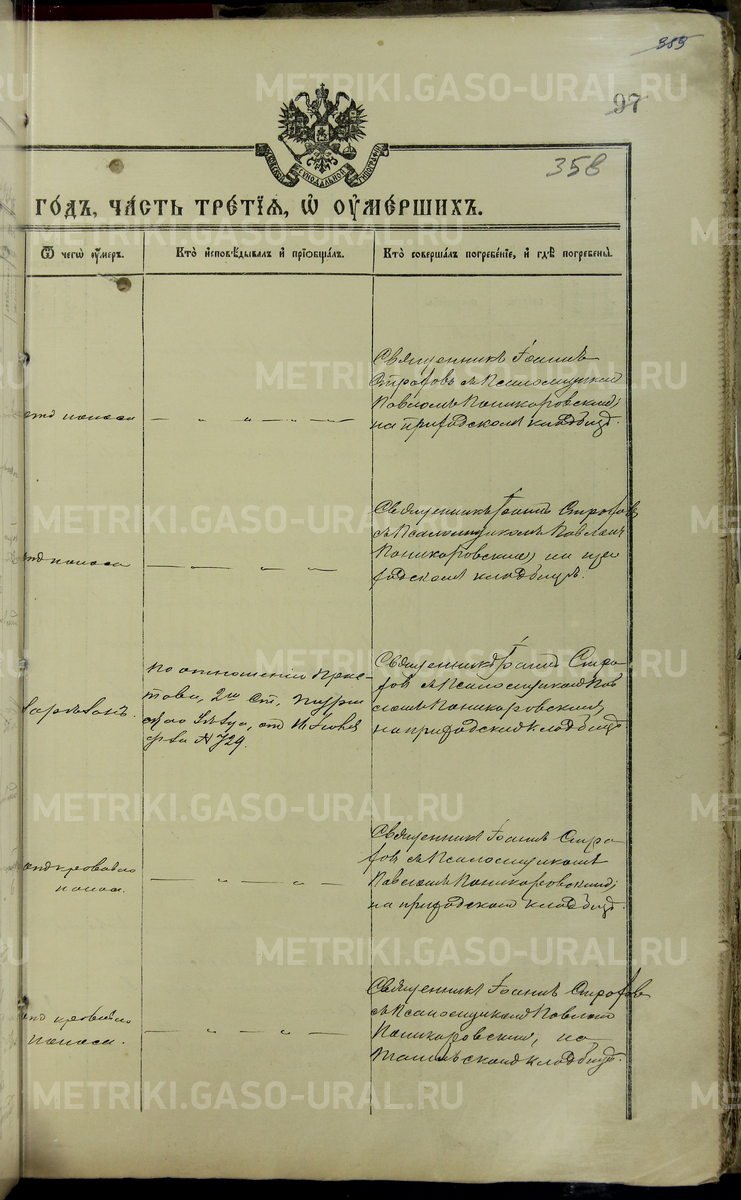 389
97
358
СУНОДАЛЬНОЙ ТИПОГРАФІИ
ГОДЪ, ЧАСТЬ ТРЕТІЯ, Ѡ ОУМЕРШИХЪ.
Ѿ чегѡ оумеръ.
Кто исповѣдывалъ и пріобщалъ.
Кто совершалъ погребеніе, и гдѣ погребены.
поноса
— „ — „ — „ —
Священникъ Іоаннъ
съ Псаломщикомъ
Павломъ Паникаровскимъ,
на приходскомъ кладбищѣ.
поноса
— „ — „ — „
Священникъ Іоаннъ
съ Псаломщикомъ Павломъ
Паникаровскимъ, на при
ходскомъ кладбищѣ.
по отношенію Прис-
това, 2го Ст.
Уѣзда, отъ
№ 729.
Священникъ Іоаннъ
съ Псаломщикомъ Пав
ломъ Паникаровскимъ,
на приходскомъ кладбищѣ.
отъ кроваваго
поноса.
— „ — „ —
Священникъ Іоаннъ
съ Псаломщикомъ
Павломъ Паникаровскимъ,
на приходскомъ кладбищѣ.
отъ кроваваго
поноса.
— „ — „ —
Священникъ Іоаннъ
съ Псаломщикомъ Павломъ
Паникаровскимъ, на
кладбищѣ.
METRIKI.GASO-URAL.RU